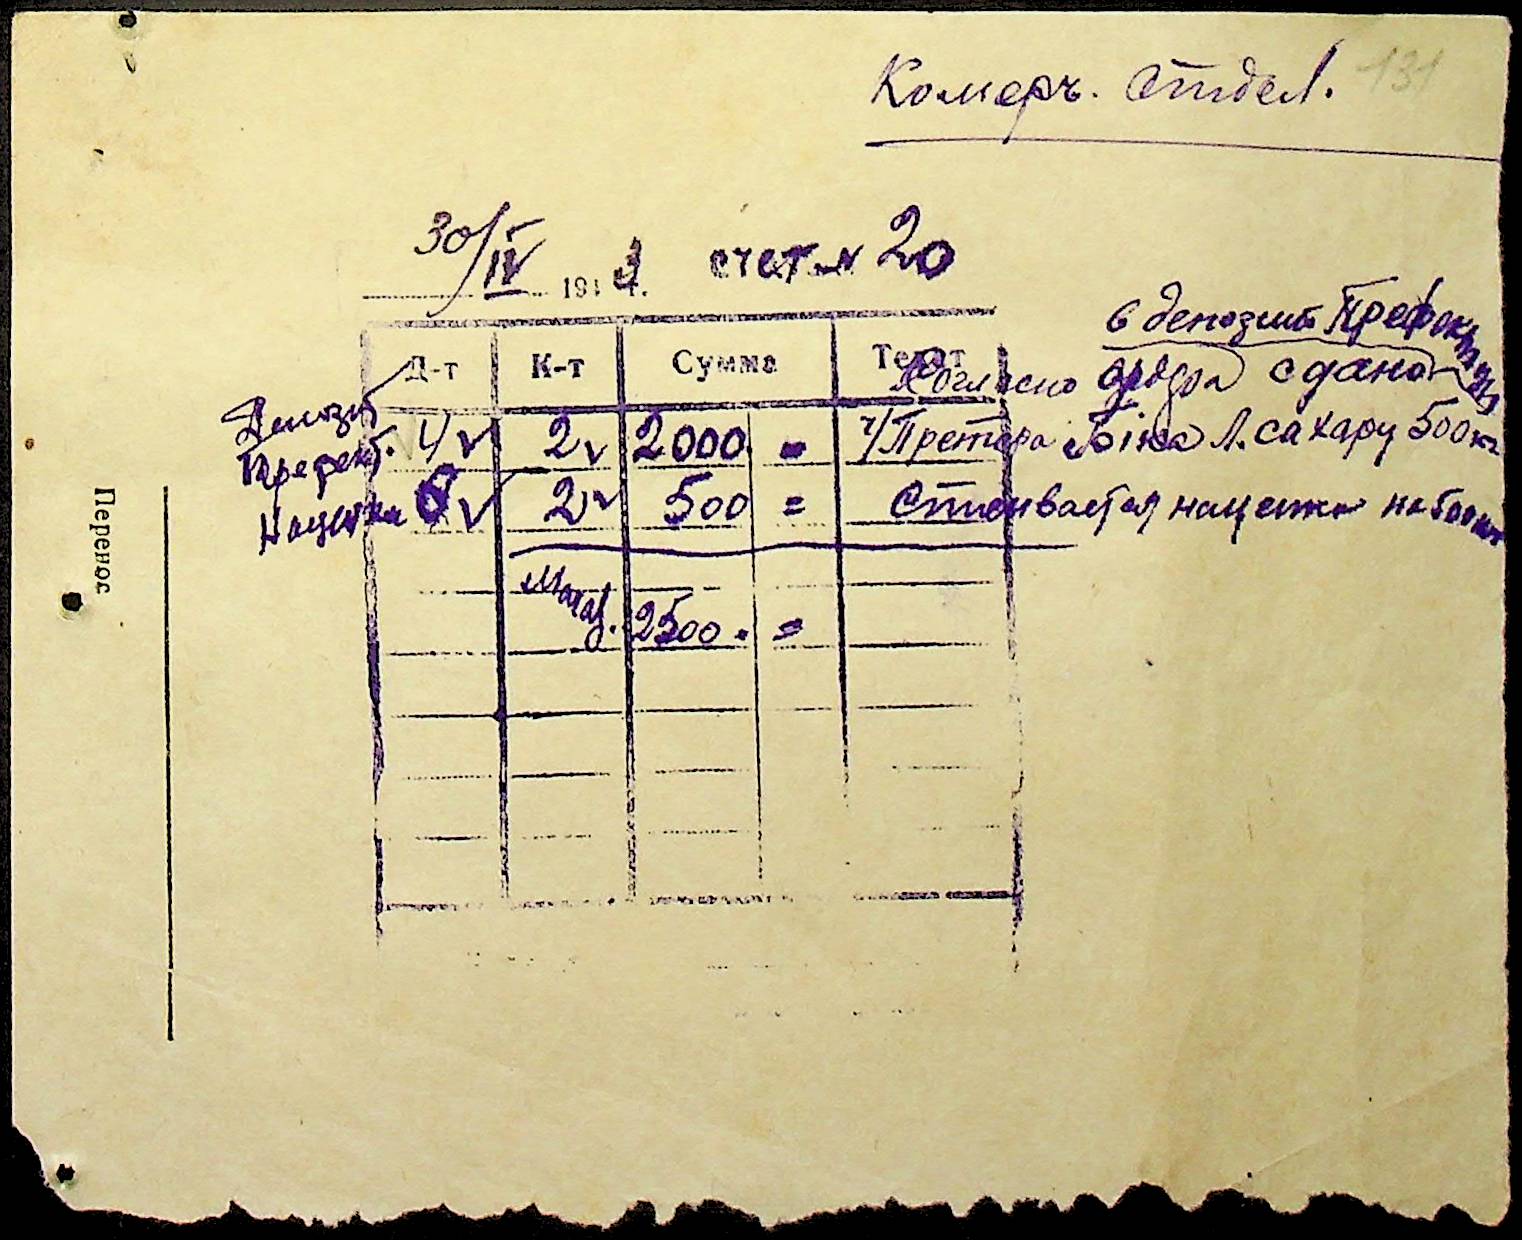 131
Комерч. Отдел.
30/IV 1943 г. счет № 20
в депозит Префектуры
Д-т К-т Сумма Текст
Согласно ордера сдано
Депозит
Префект. 4 2 2000 = ч/Претора Л. сахару 500 кг
Наценка 6 2 500 = наценка на 500 кг
Магаз. 2500. =
Перенос